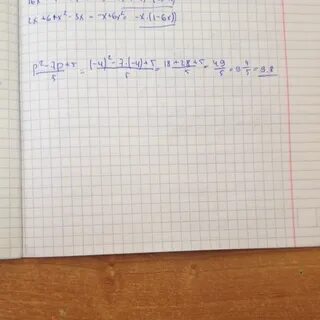 2x+6+x²-3x = -x+6x² = -x·(1-6x)
p²-7p+5/5 = (-4)²-7·(-4)+5/5 = 18+28+5/5 = 49/5 = 9 4/5 = 9.8